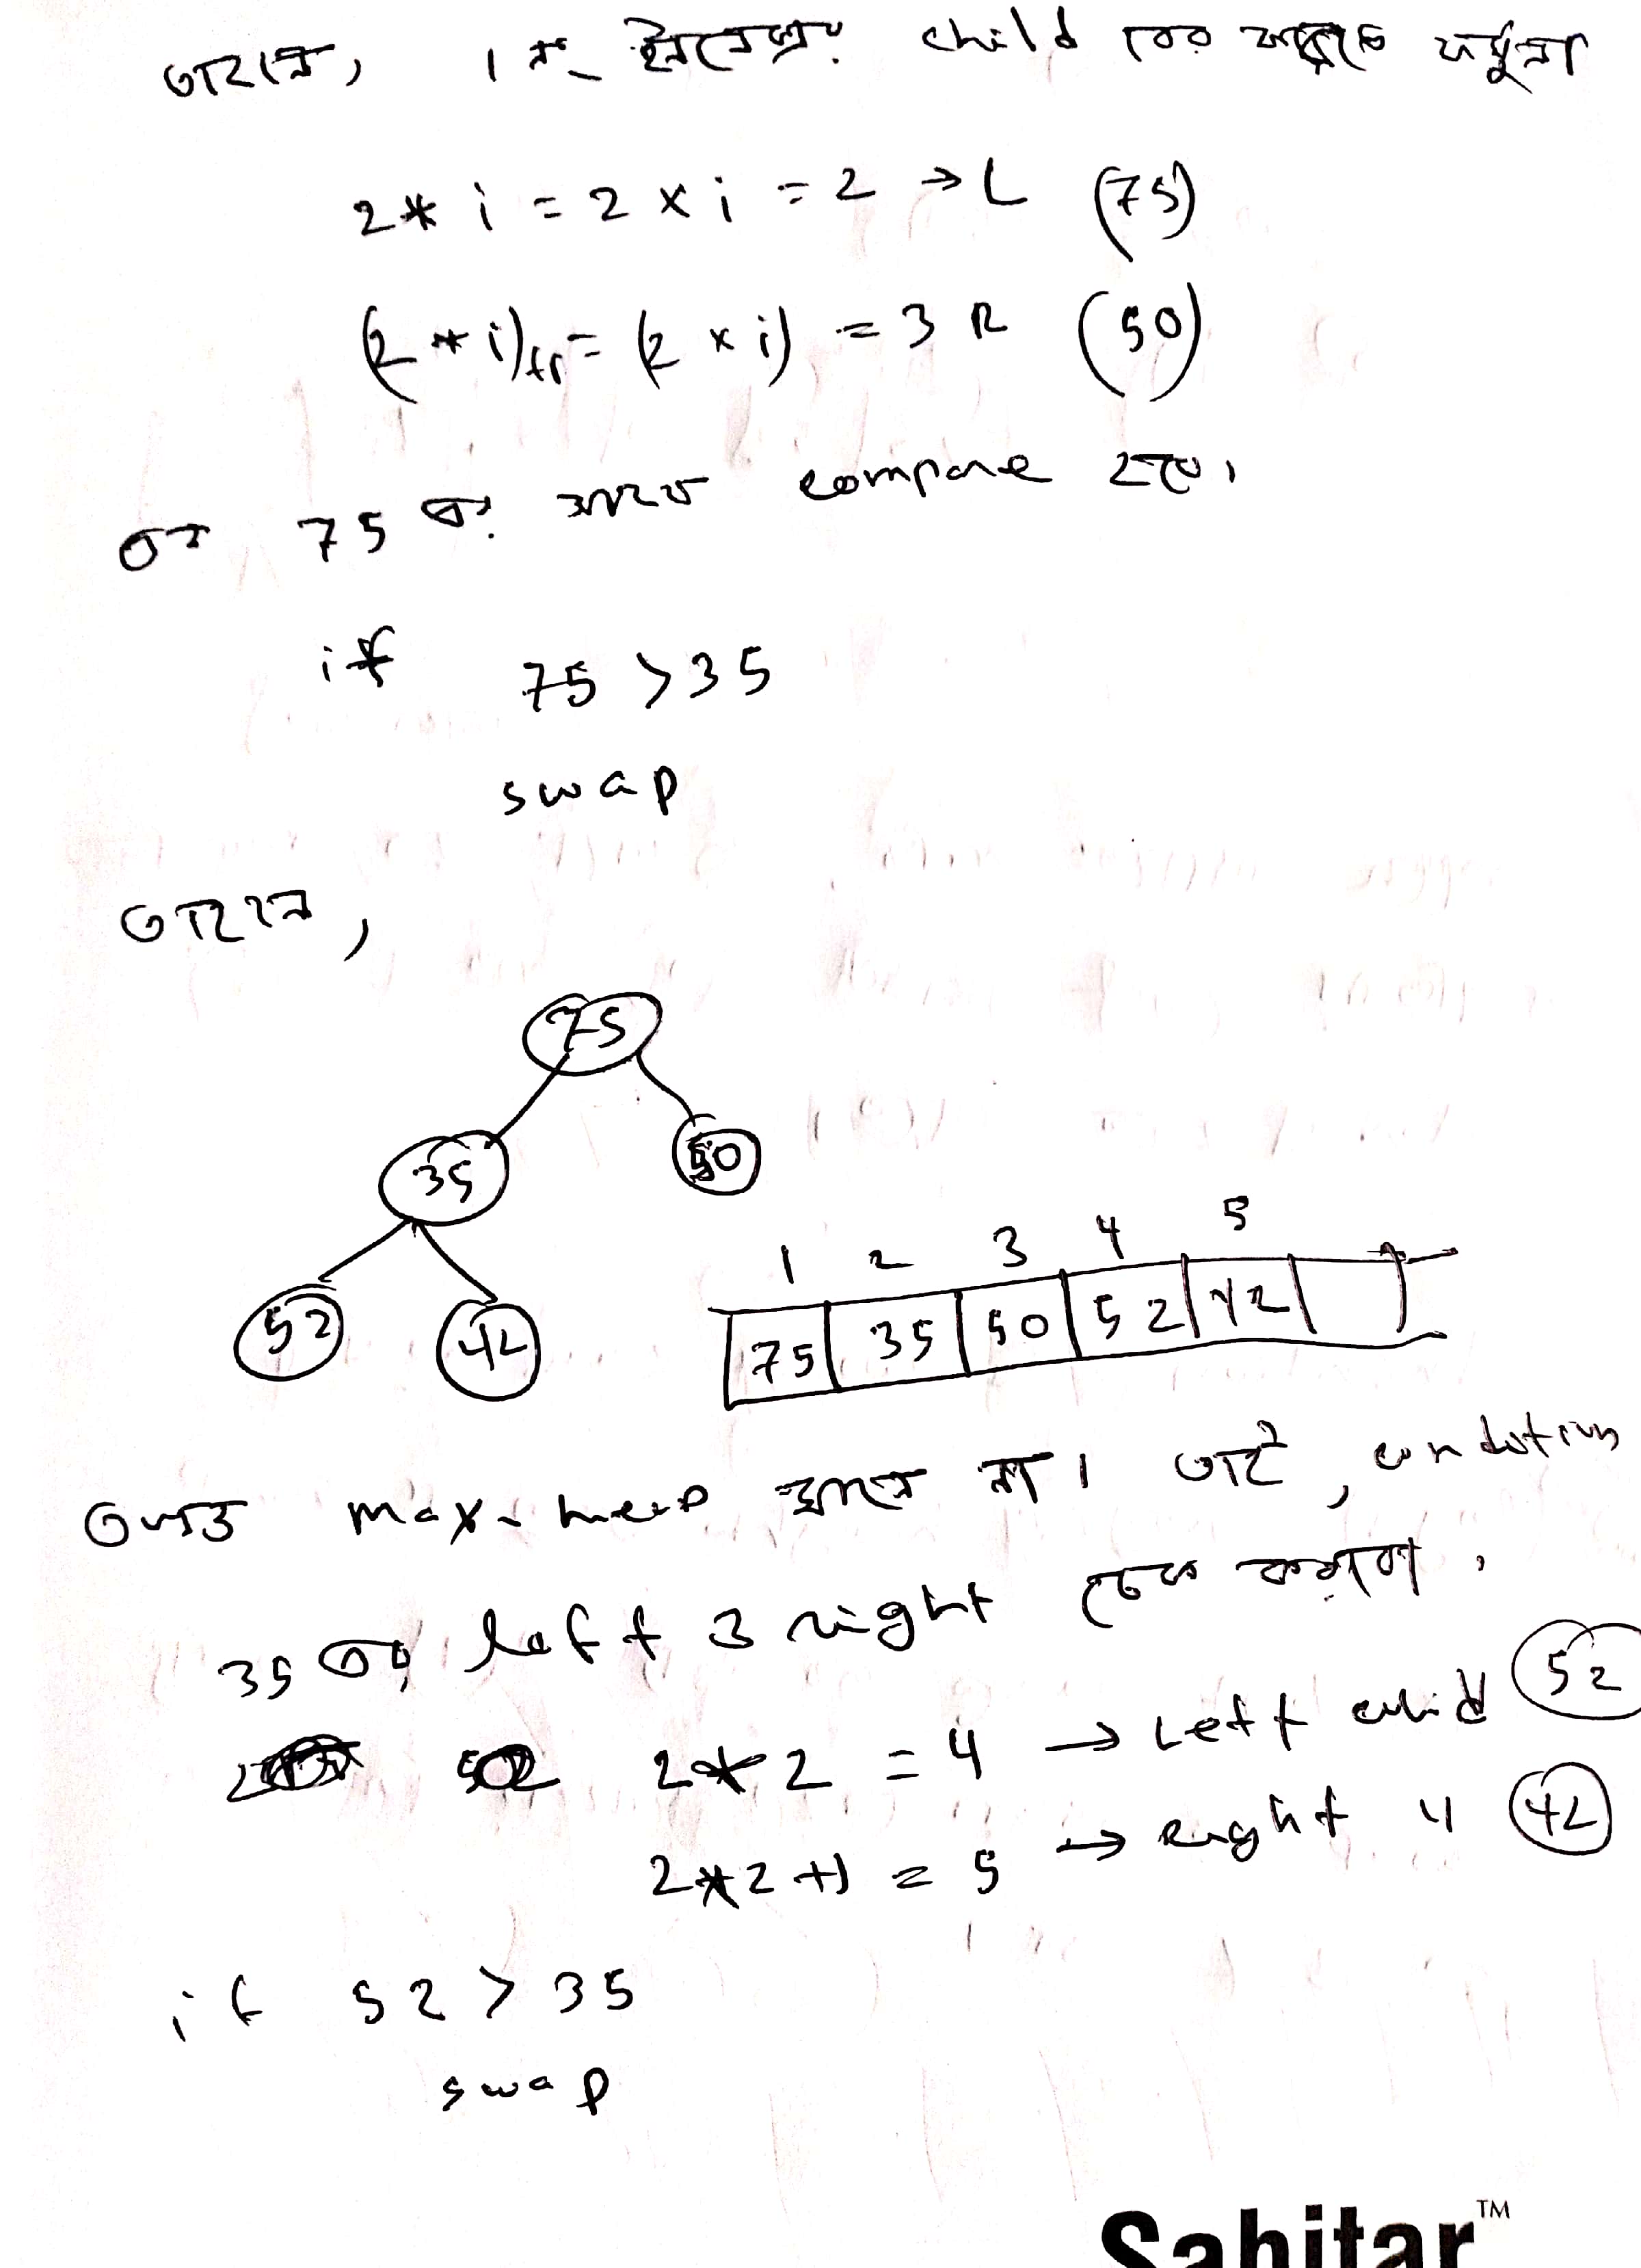 তাহলে, 1 নং ইনডেক্সের child বের করতে ফর্মুলা
2 * i = 2 x i = 2 → L (75)
(2 * i)+1 = (2 x i) = 3 R (50)
75 এর সাথে compare হবে।
if 75 > 35
swap
তাহলে,
75
35 50
52 42
1 2 3 4 5
75 35 50 52 42
max-heap না। তাই, condition
35 এর left ও right চেক করবো।
2 * 2 = 4 → Left child 52
2 * 2 + 1 = 5 → Right " 42
if 52 > 35
swap
Sahitar™